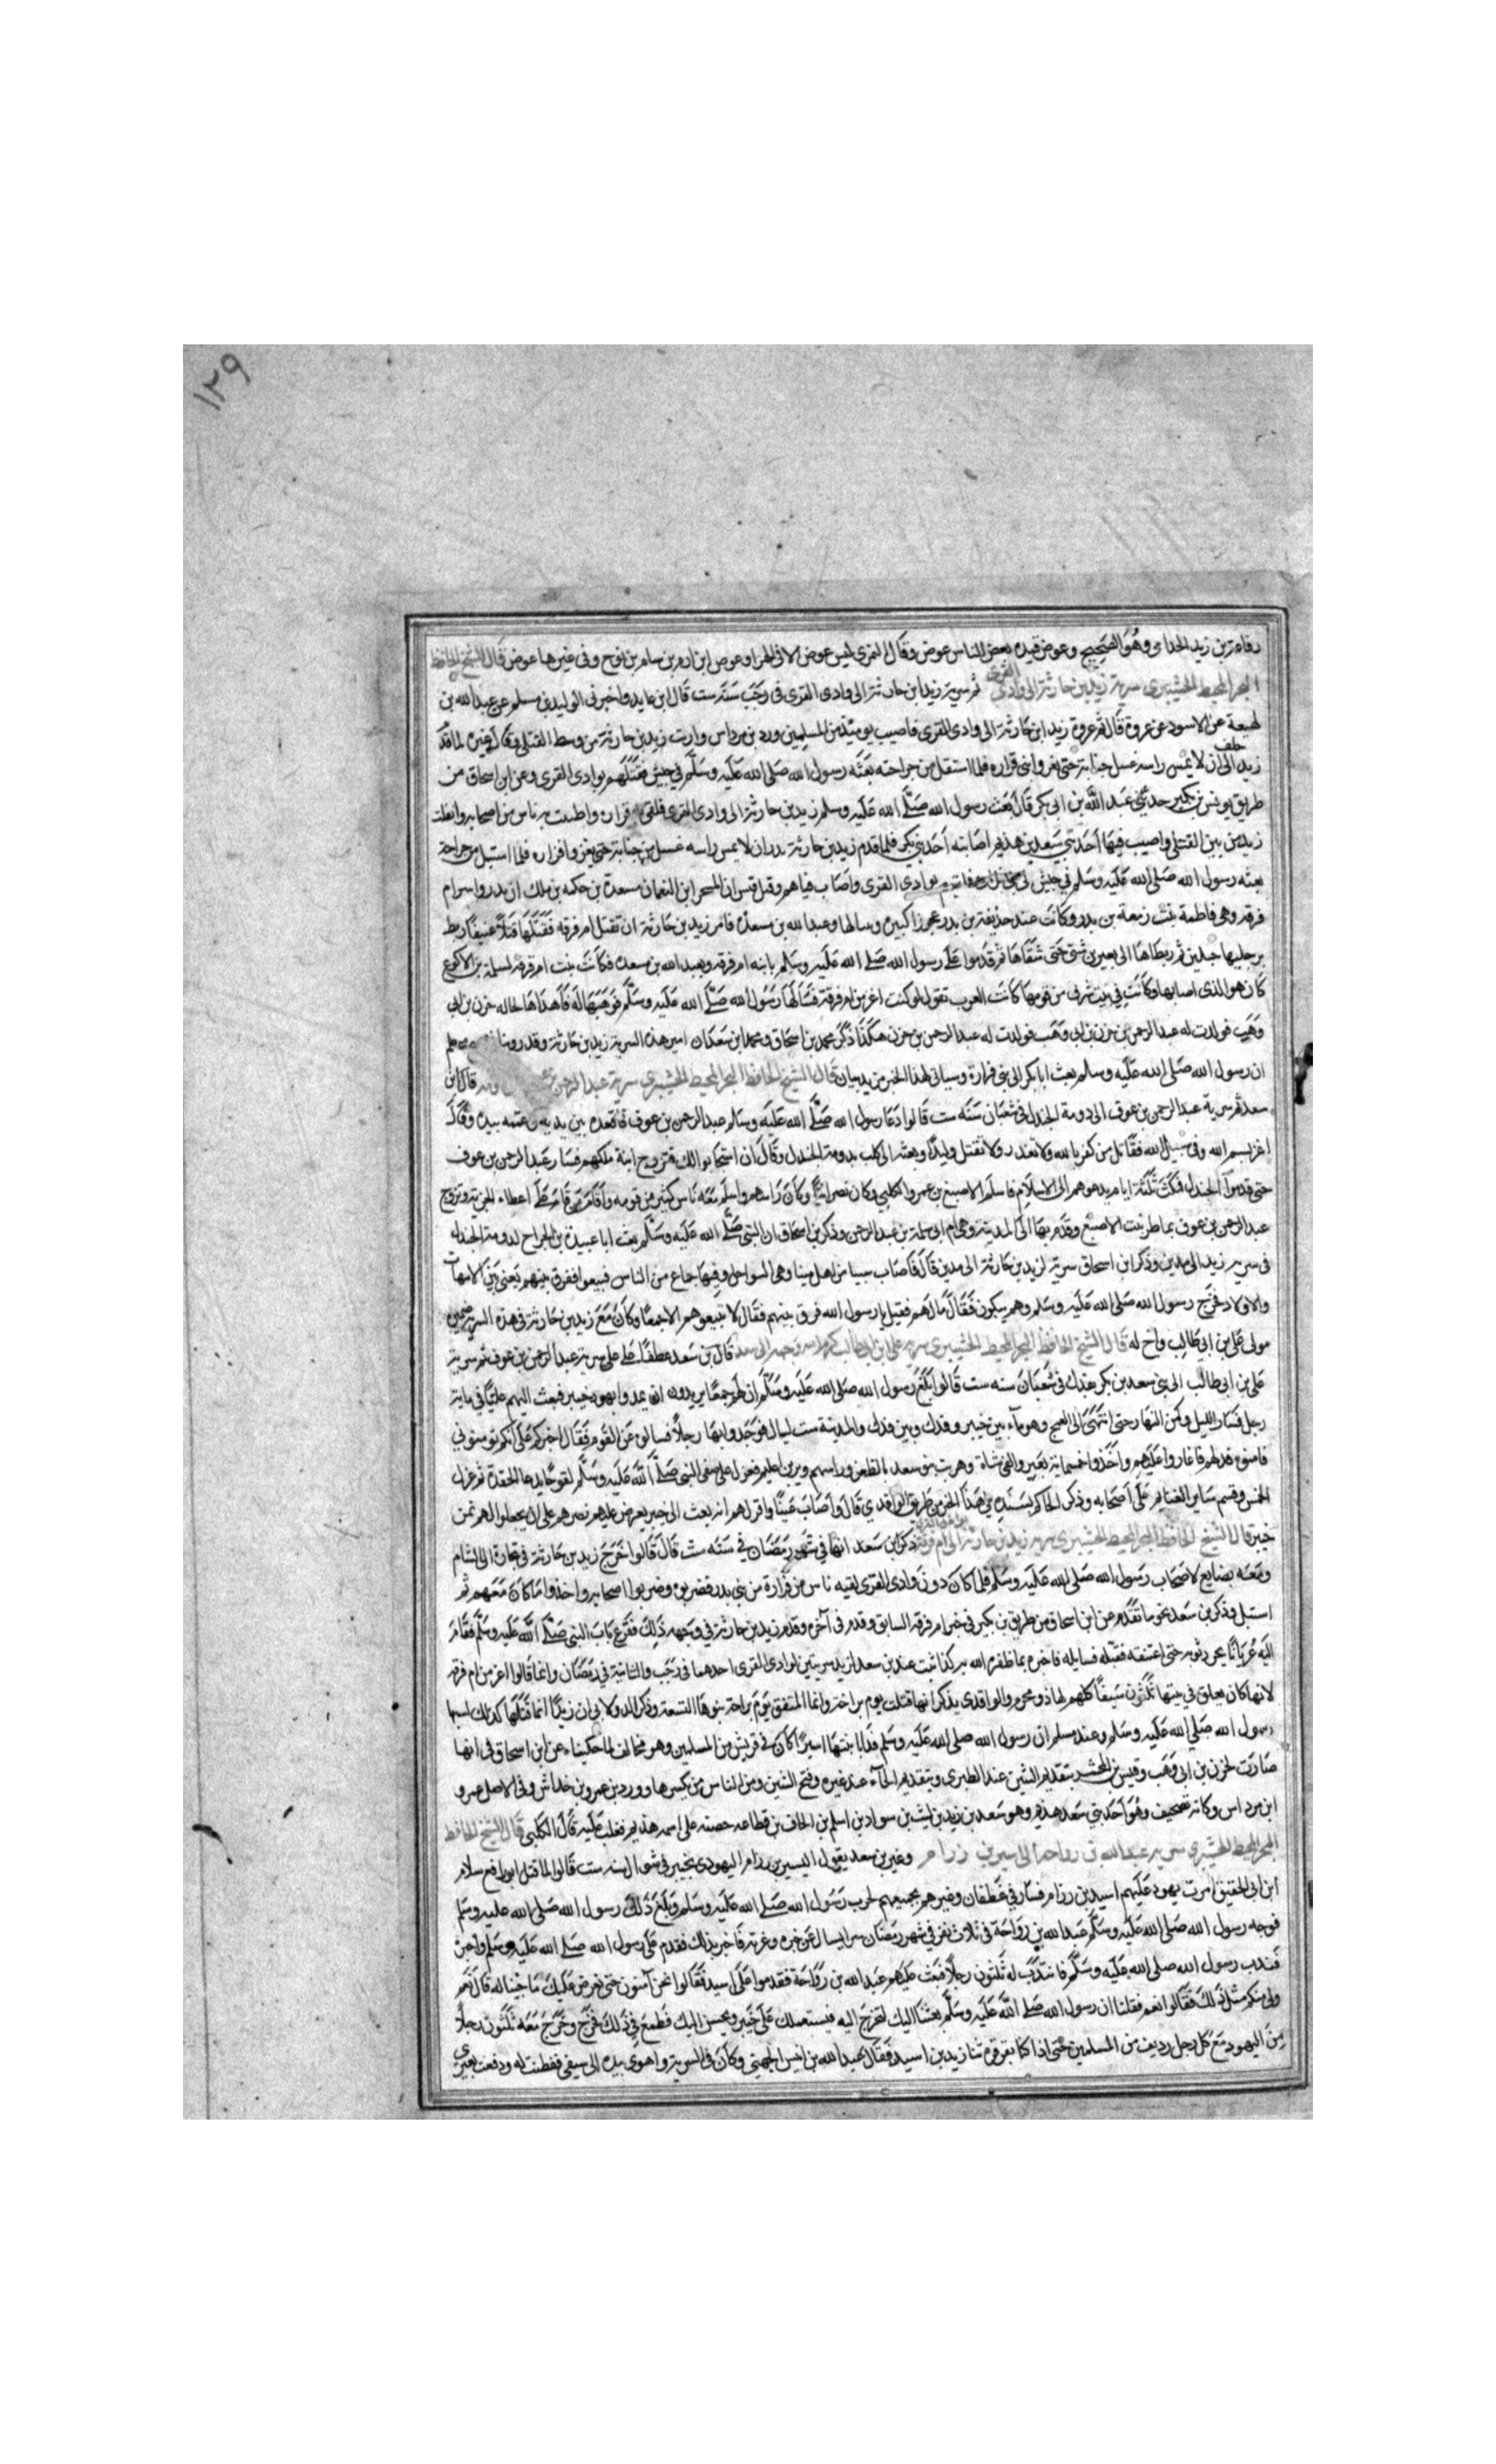 ١٢٩
رفاعة بن زيد الجذامي وهو الصحيح وعوض قيده بعض الناس عوض وقال النمري ليس عوض الا في الحمرا وعوص ابن ارم بن سام بن نوح وفي غيرها عوض قال الشيخ الحافظ
البحر المحيط سرية زيد بن حارثة الى وادي القرى ثم سرية زيد ابن حارثة الى وادي القرى في رجب سنة ست قال ابن عايد واخبرني الوليد بن مسلم عن عبد الله بن
لهيعة عن الاسود عن عروة قال ثم غزوة زيد ابن حارثة الى وادي القرى فاصيب يومئذ من المسلمين ورد بن مرداس وارتث زيد بن حارثة من وسط القتلى وقال غيره لما قدم
زيد الى ان لا يمس راسه غسل جنابة حتى يغزو بني فزارة فلما استقل من جراحته بعثه رسول الله صلى الله عليه وسلم في جيش فقتلهم بوادي القرى وعن ابن اسحاق من
خلف
طريق يونس بن بكير حدثني عبد الله بن ابي بكر قال بعث رسول الله صلى الله عليه وسلم زيد بن حارثة الى وادي القرى فلقي فزارة واصيب به ناس من اصحابه وانفلت
زيد من بين القتلى واصيب فيها احد بني سعد بن هذيم اصابه احد بني بكر فلما قدم زيد بن حارثة نذر ان لا يمس راسه غسل من جنابة حتى يغزو فزارة فلما استبل من جراحه
بعثه رسول الله صلى الله عليه وسلم في جيش بوادي القرى واصاب فيهم وقتل قيس ابن المسحر ابن النعمان مسعدة بن حكمة بن ملك ابن بدر واسر ام
قرفة وهي فاطمة بنت ربيعة بن بدر وكانت عند حذيفة بن بدر عجوزا كبيرة وعبد الله بن مسعدة فامر زيد بن حارثة ان تقتل ام قرفة فقتلها قتلا عنيفا ربط
برجليها حبلين ثم ربطاها الى بعيرين شتى حتى شقاها ثم قدموا على رسول الله صلى الله عليه وسلم بابنة ام قرفة وبعبد الله بن مسعدة فكانت بنت ام قرفة لسلمة بن الاكوع
كان هو الذي اصابها وكانت في بيت شرف من قومها كانت العرب تقول لو كنت اعز من ام قرفة فسالها رسول الله صلى الله عليه وسلم فوهبها له فاهداها خاله حزن بن ابي
وهب فولدت له عبد الرحمن بن حزن هكذا ذكر محمد بن اسحاق ومحمد ابن سعد ان امير هذه السرية زيد بن حارثة وقد روينا
ان رسول الله صلى الله عليه وسلم بعث ابا بكر الى بني فزارة وسياتي لهذا الخبر مزيد بيان قال الشيخ الحافظ البحر المحيط سرية عبد الرحمن قال ابن
سعد ثم سرية عبد الرحمن بن عوف الى دومة الجندل في شعبان سنة ست قالوا دعا رسول الله صلى الله عليه وسلم عبد الرحمن بن عوف فاقعده بين يديه وعممه بيده وقال
اغز بسم الله وفي سبيل الله فقاتل من كفر بالله ولا تغدر ولا تقتل وليدا وبعثه الى كلب بدومة الجندل وقال ان استجابوا لك فتزوج ابنة ملكهم فسار عبد الرحمن بن عوف
حتى قدم دومة الجندل فمكث ثلثة ايام يدعوهم الى الاسلام فاسلم الاصبغ بن عمرو الكلبي وكان نصرانيا وكان راسهم واسلم معه ناس كثير من قومه واقام من اقام على اعطاء الجزية وتزوج
عبد الرحمن بن عوف تماضر بنت الاصبغ وقدم بها الى المدينة وهي ام ابي سلمة بن عبد الرحمن وذكر ابن اسحاق ان النبي صلى الله عليه وسلم بعث ابا عبيدة بن الجراح لدومة الجندل
في سرية زيد الى مدين وذكر ابن اسحاق سرية لزيد بن حارثة الى مدين قال فاصاب سبيا من اهل مينا وهي السواحل وفيها جماع من الناس فبيعوا ففرق بينهم يعني بين الامهات
والاولاد فخرج رسول الله صلى الله عليه وسلم وهم يبكون فقال ما لهم فقيل يا رسول الله فرق بينهم فقال لا تبيعوهم الا جميعا وكان مع زيد بن حارثة في هذه السرية ضمير
مولى علي بن ابي طالب واخ له قال الشيخ الحافظ البحر المحيط سرية علي ابن ابي طالب كرم الله وجهه الى سعد قال ابن سعد عطفا على سرية عبد الرحمن بن عوف ثم سرية
علي بن ابي طالب الى بني سعد بن بكر بفدك في شعبان سنة ست قالوا بلغ رسول الله صلى الله عليه وسلم ان لهم جمعا يريدون ان يمدوا يهود خيبر فبعث اليهم عليا في ماية
رجل فسار الليل وكمن النهار حتى انتهى الى الهمج وهو ماء بين خيبر وفدك وبين فدك والمدينة ست ليال فوجدوا بها رجلا فسالوه عن القوم فقال اخبركم على انكم تومنوني
فامنوه فدلهم فاغاروا عليهم واخذوا خمسماية بعير والفي شاة وهربت بنو سعد بالظعن وراسهم وبر بن عليم فعزل علي صفي النبي صلى الله عليه وسلم لقوحا يدعا الحفدة ثم عزل
الخمس وقسم سائر الغنايم على اصحابه وذكر الحاكم بسنده هذا الخبر من طريق الواقدي قال واصاب عينا واقر لهم انه بعث الى خيبر يعرض عليهم نصرهم على ان يجعلوا لهم ثمن
خيبر قال الشيخ الحافظ البحر المحيط سرية زيد بن حارثة الى ام قرفة ذكر ابن سعد انها في شهر رمضان في سنة ست قال قالوا خرج زيد بن حارثة في تجارة الى الشام
ومعه بضايع لاصحاب رسول الله صلى الله عليه وسلم فلما كان دون وادي القرى لقيه ناس من فزارة من بني بدر فضربوه وضربوا اصحابه واخذوا ما كان معهم ثم
استبل وذكر بن سعد نحو ما تقدم عن ابن اسحاق من طريق بن بكير في خبر ام قرفة السابق وقدم في اخره وقدم زيد بن حارثة في وجهه ذلك فقرع باب النبي صلى الله عليه وسلم فقام
اليه عريانا يجر ثوبه حتى اعتنقه فقبله فسايله فاخبره بما ظفره الله به كذا ثبت عند بن سعد لزيد سريتين لوادي القرى احدهما في رجب والثانية في رمضان وانما قالوا اعز من ام قرفة
لانها كان يعلق في بيتها ثلثون سيفا كلهم لها ذو محرم والواقدي يذكر انها قتلت يوم بزاخة وانما المتفق يوم بزاخة بنوها التسعة وذكر الدولابي ان زيدا انما قتلها كذلك لسبها
رسول الله صلى الله عليه وسلم وعند مسلم ان رسول الله صلى الله عليه وسلم فدا بابنتها اسيرا كان في قريش من المسلمين وهو مخالف لما حكيناه عن ابن اسحاق في انها
صارت لحزن بن ابي وهب وقيس بن المحسر بتقديم السين عند الطبري وبتقديم الحاء عند غيره وفتح السين ومن الناس من يكسرها وورد بن عمرو بن خداش وفي الاصل عمرو
ابن مرداس وكانه تصحيف وهو احد بني سعد هذيم وهو سعد بن زيد بن ليث بن سود بن اسلم بن الحاف بن قضاعة حضنه على اسمه هذيم فغلب عليه قال الكلبي قال الشيخ الحافظ
البحر المحيط سرية عبد الله بن رواحة الى اسير بن رزام وغير بن سعد يقول اليسير بن رزام اليهودي بخيبر في شوال سنة ست قالوا لما قتل ابو رافع سلام
ابن ابي الحقيق امرت يهود عليهم اسير بن رزام فسار في غطفان وغيرهم يجمعهم لحرب رسول الله صلى الله عليه وسلم وبلغ ذلك رسول الله صلى الله عليه وسلم
فوجه رسول الله صلى الله عليه وسلم عبد الله بن رواحة في ثلاث نفر في شهر رمضان سرا يسال عن خبره وغرته فاخبر بذلك فقدم على رسول الله صلى الله عليه وسلم واخبره
فندب رسول الله صلى الله عليه وسلم فانتدب له ثلثون رجلا فبعث عليهم عبد الله بن رواحة فقدموا على اسير فقالوا نحن آمنون حتى نعرض عليك ما جينا له قال نعم
ولي منكم مثل ذلك فقالوا نعم فقلنا ان رسول الله صلى الله عليه وسلم بعثنا اليك لتخرج اليه فيستعملك على خيبر ويحسن اليك فطمع في ذلك فخرج وخرج معه ثلثون رجلا
من اليهود مع كل رجل رديف من المسلمين حتى اذا كنا بقرقرة فقال عبد الله بن انيس الجهني وكان في السرية واهوى بيده الى سيفي ففطنت له ودفعت بعيري